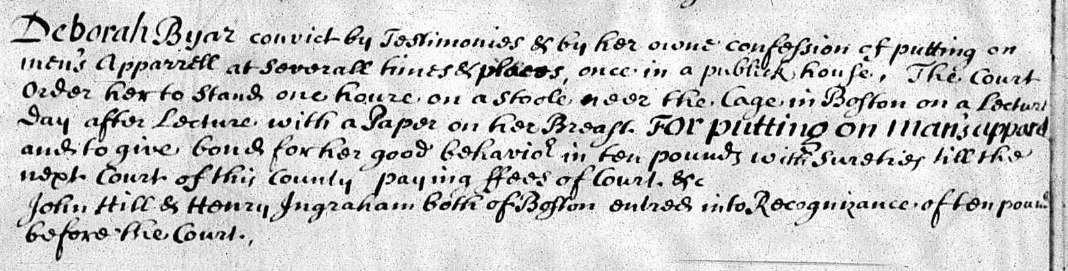 Deborah Byar convict by Testimonies & by her owne confession of putting on
men's Apparrell at severall times & places, once in a publick house, The Court
Order her to stand one houre on a stoole neer the Cage in Boston on a Lecture
day after Lecture with a Paper on her Breast FOR putting on man's apparel
and to give bond for her good behavior in ten pounds with sureties till the
next Court of this County paying ffees of Court &c
John Hill & Henry Ingraham both of Boston entred into Recognizance of ten pound
before the Court.,